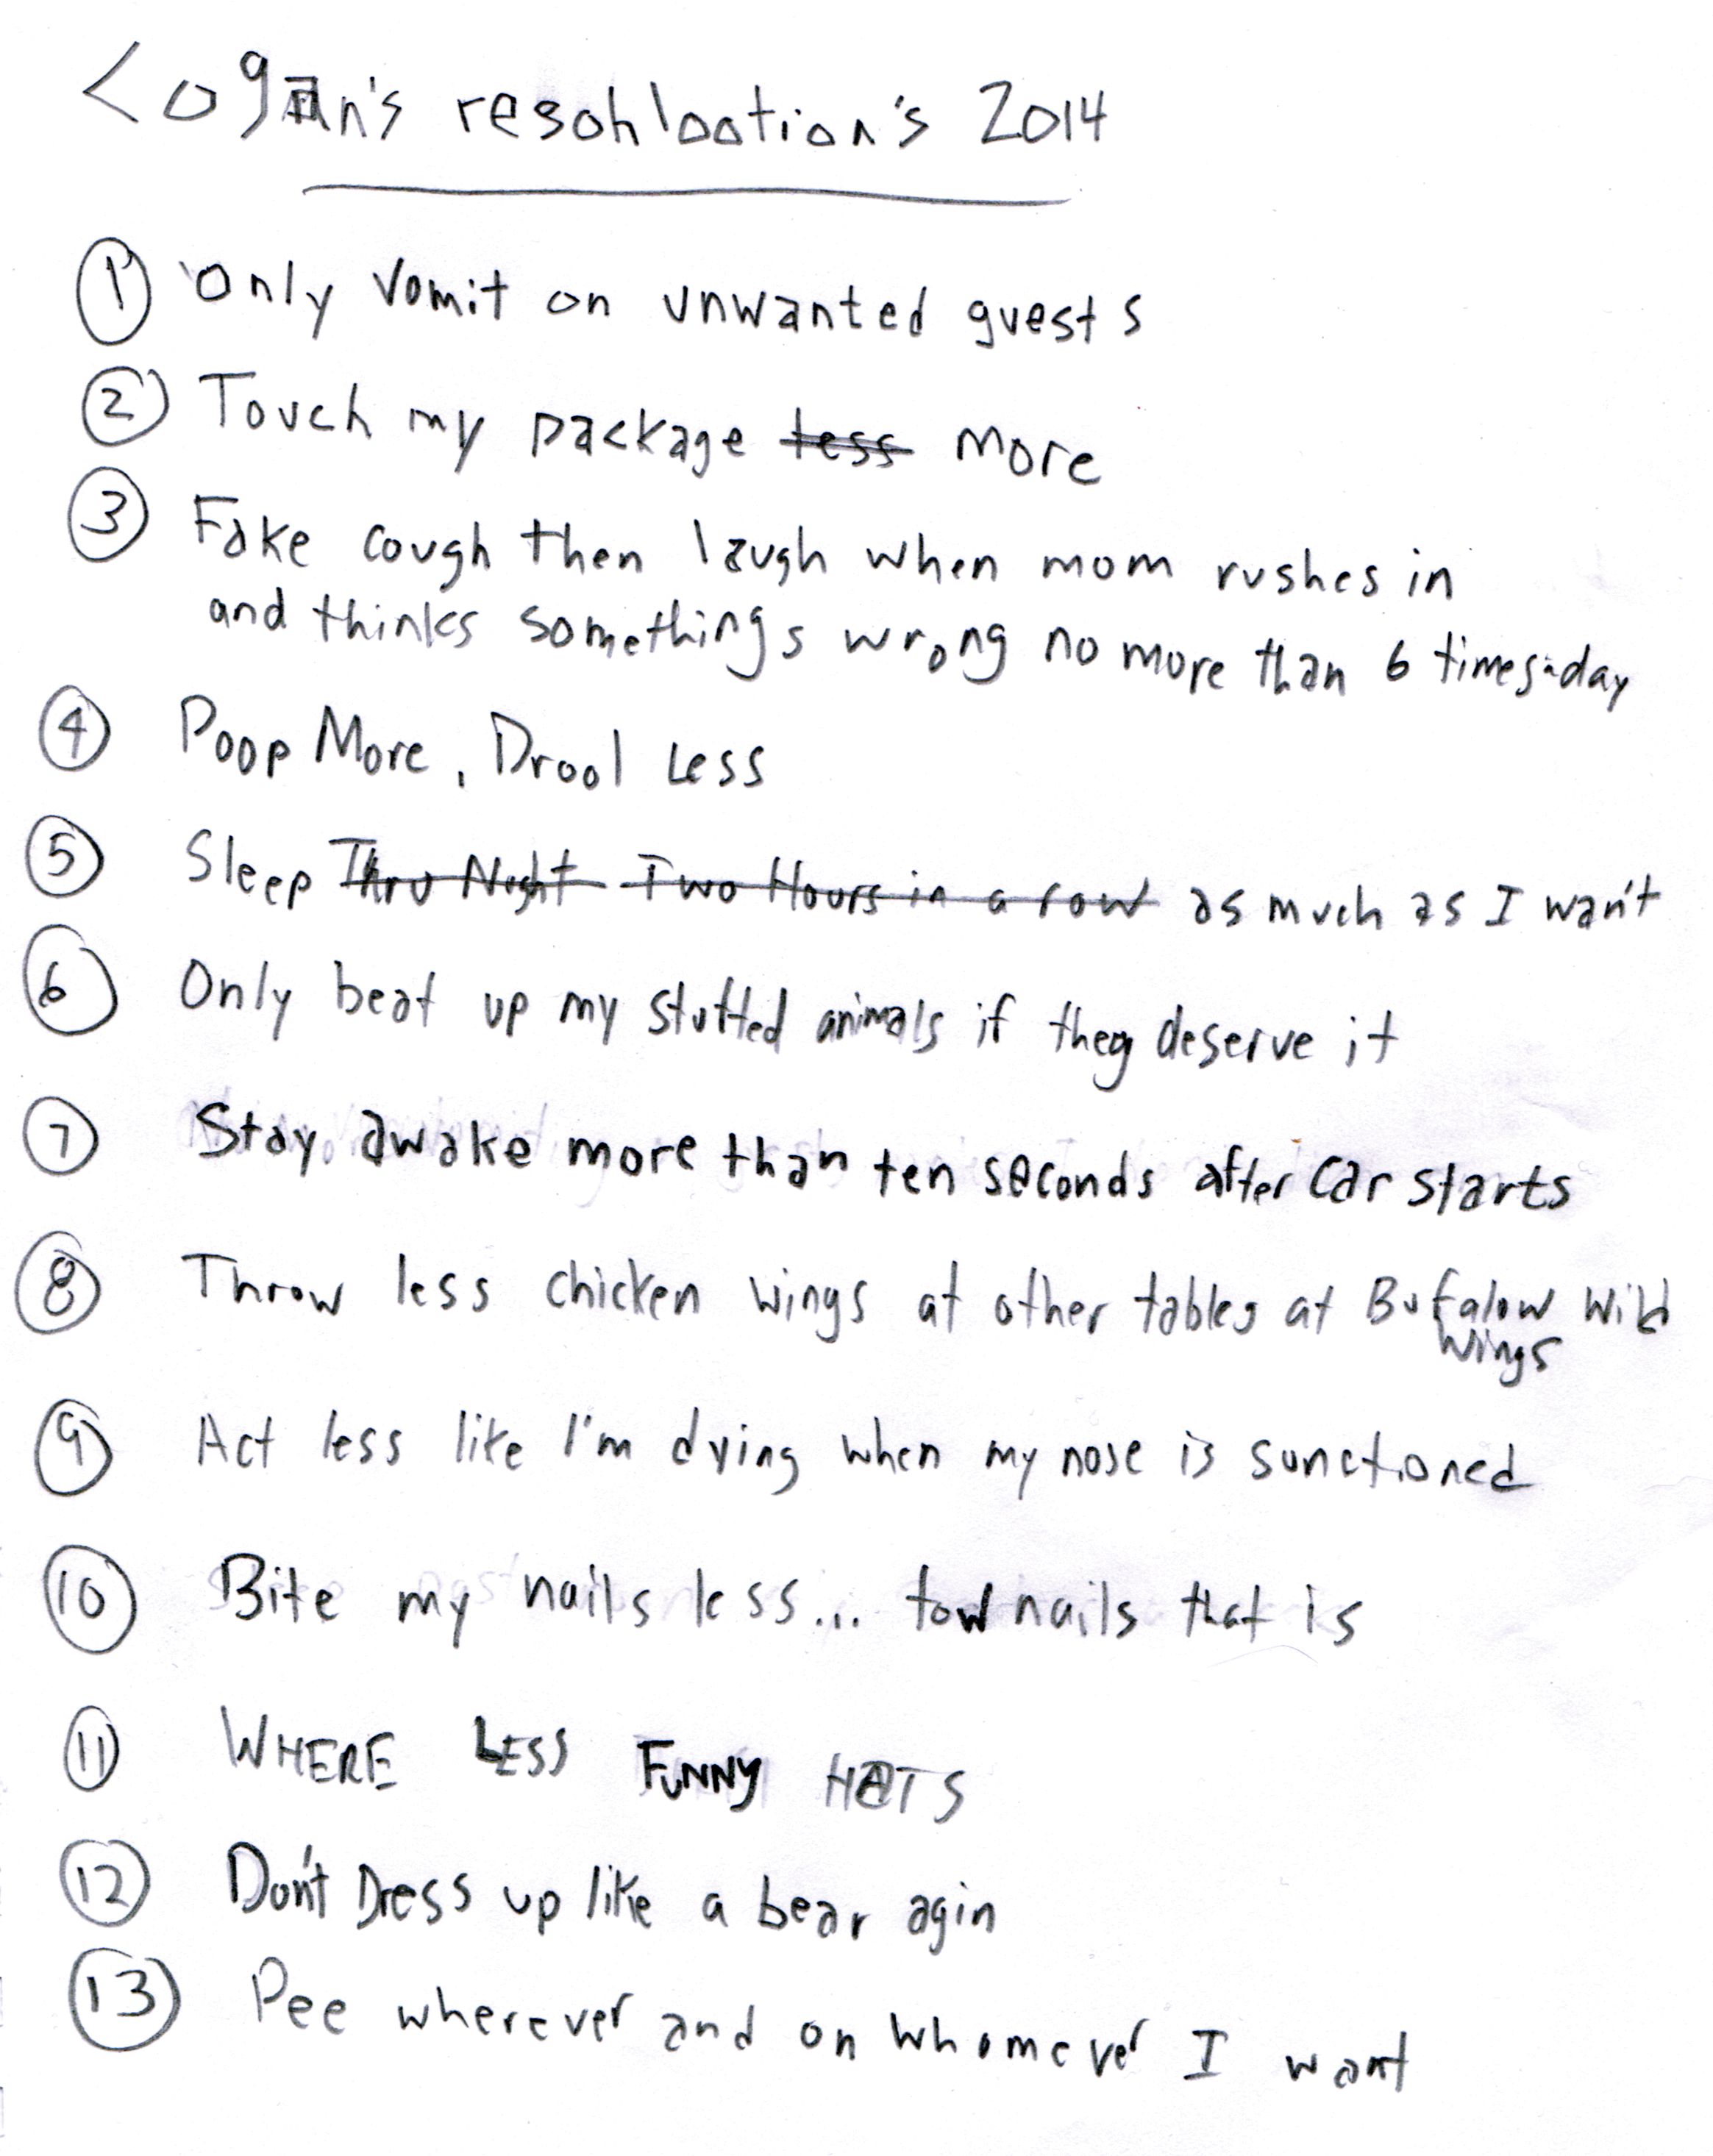 Logan's resohlootion's 2014
1 Only vomit on unwanted guests
2 Touch my package less more
3 Fake cough then laugh when mom rushes in
and thinks somethings wrong no more than 6 times a day
4 Poop More, Drool Less
5 Sleep Thru Night Two Hours in a row as much as I wan't
6 Only beat up my stuffed animals if they deserve it
7 Stay awake more than ten seconds after car starts
8 Throw less chicken wings at other tables at Bufalow Wild
Wings
9 Act less like I'm dying when my nose is sunctioned
10 Bite my nails less... tow nails that is
11 WHERE LESS FUNNY HATS
12 Don't Dress up like a bear agin
13 Pee wherever and on whomever I want